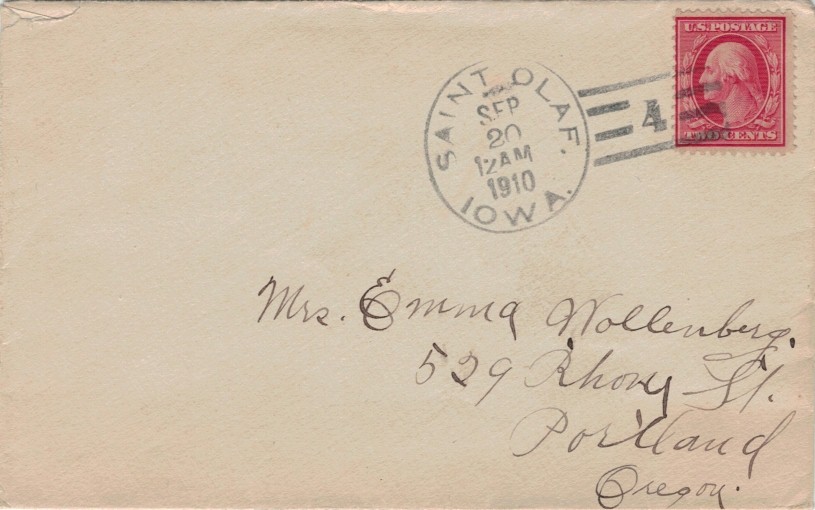 U.S. POSTAGE
TWO CENTS
SAINT OLAF.
SEP
20
12 AM
1910
IOWA.
4
Mrs. Emma Wollenberg.
529 Rhony St.
Portland
Oregon.